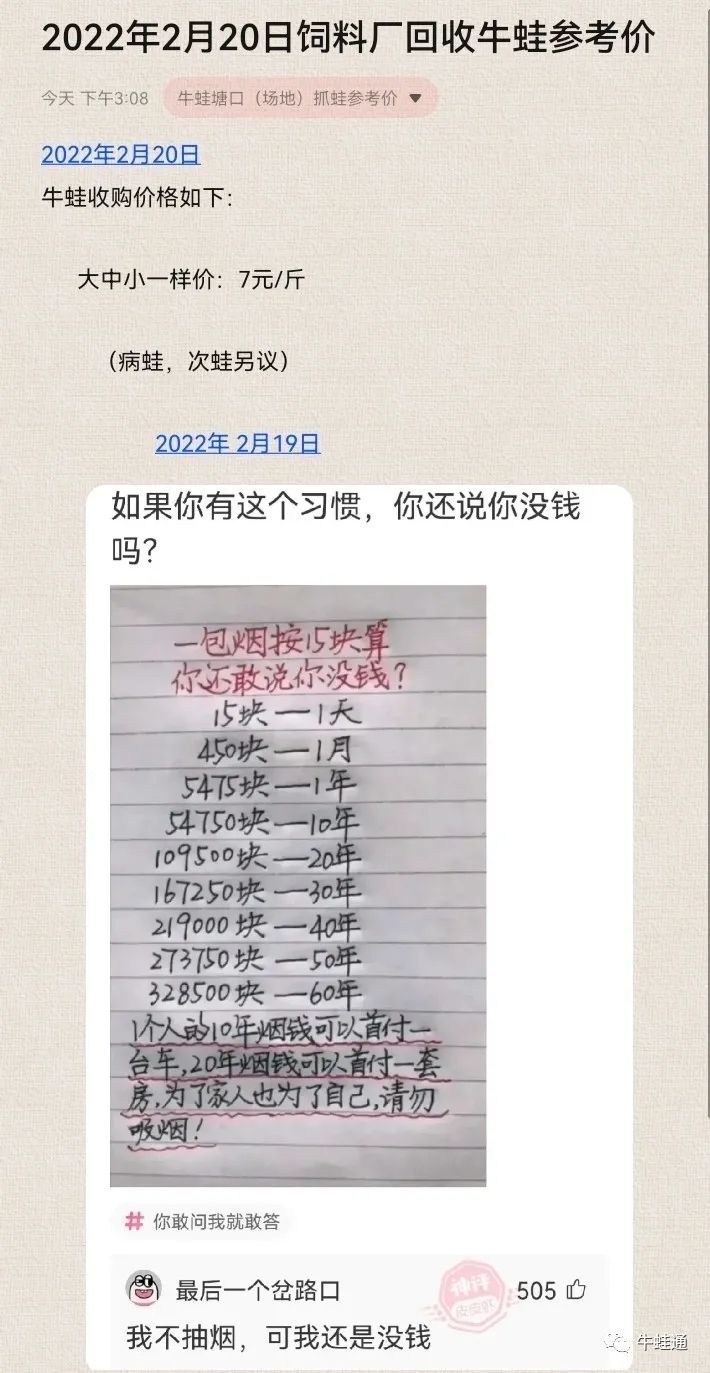 2022年2月20日饲料厂回收牛蛙参考价
今天 下午3:08 牛蛙塘口（场地）抓蛙参考价
2022年2月20日
牛蛙收购价格如下：
大中小一样价：7元/斤
（病蛙，次蛙另议）
2022年 2月19日
如果你有这个习惯，你还说你没钱
吗？
一包烟按15块算
你还敢说你没钱？
15块—1天
450块—1月
5475块—1年
54750块—10年
109500块—20年
167250块—30年
219000块—40年
273750块—50年
328500块—60年
1个人的10年烟钱可以首付一
台车,20年烟钱可以首付一套
房,为了家人也为了自己,请勿
吸烟！
# 你敢问我就敢答
最后一个岔路口
神评
皮皮虾
505
我不抽烟，可我还是没钱
牛蛙通